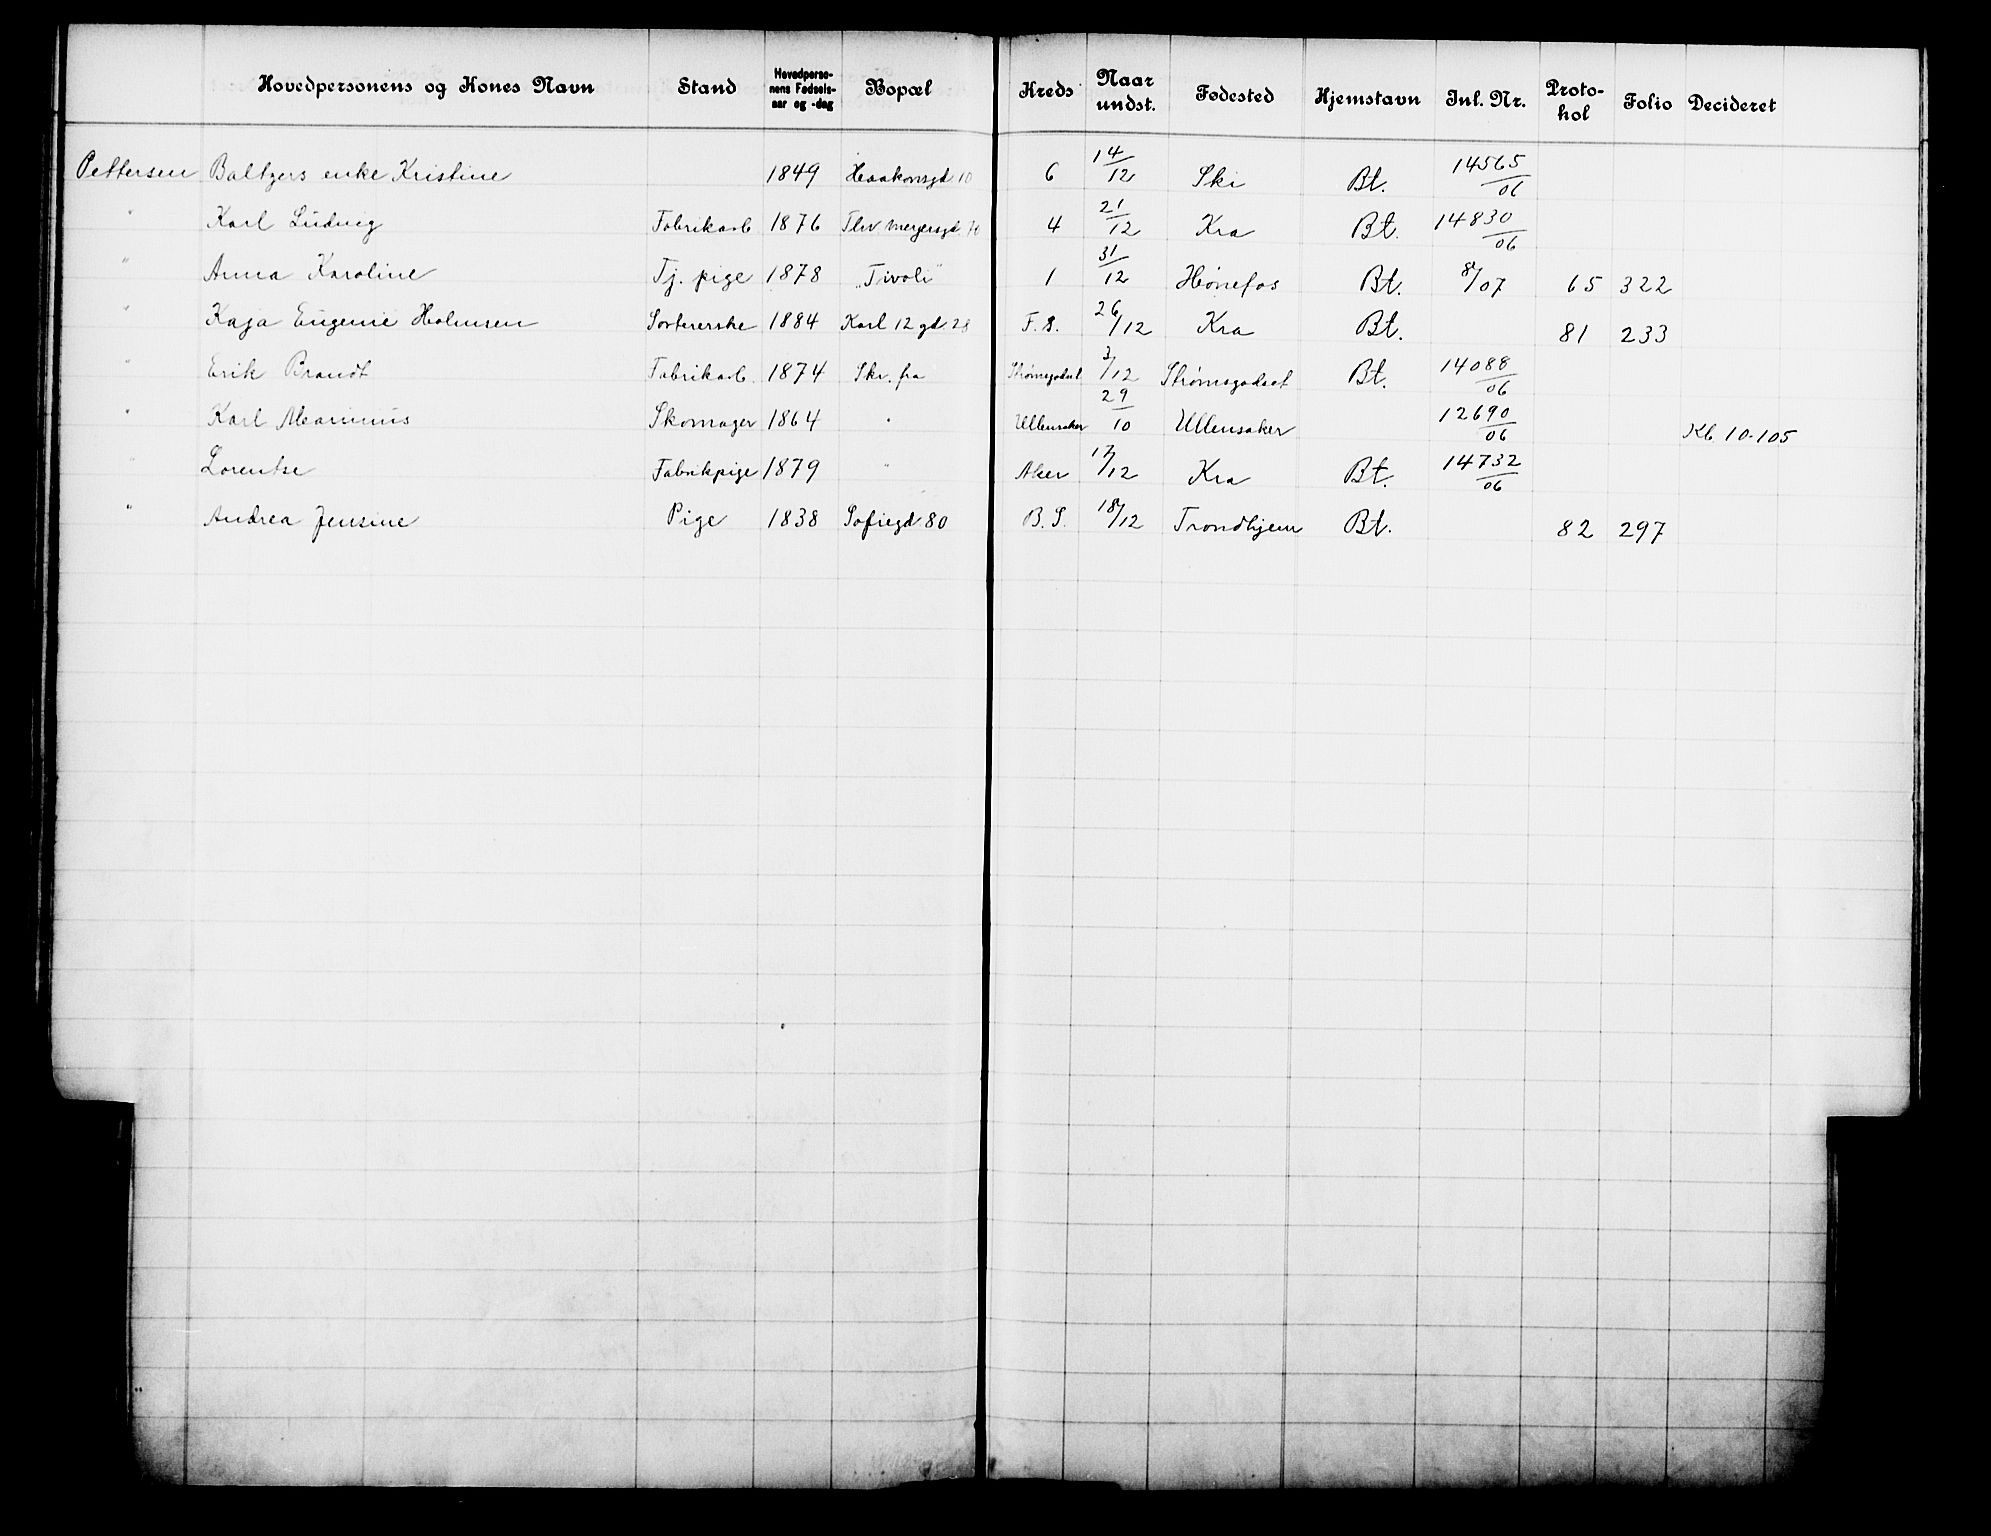 Hovedpersonens og Kones Navn Stand Hovedperso-nens Fødsels-aar og -dag Bopæl Kreds Naar undst. Fødested Hjemstavn Inl. Nr. Proto-kol Folio Decideret
Pettersen Baltzers enke Kristine 1849 Haakonsgd 10 6 14/12 Ski Bt. 14565/06
" Karl Ludvig Fabrikarb. 1876 Thv Meyersgd. 4 21/12 Kra Bt. 14830/06
" Anna Karoline Tj. pige 1878 „Tivoli" 1 31/12 Hønefos Bt. 8/07 65 322
" Kaja Eugenie Holmsen Sortererske 1884 Karl 12 gd. 28 F. S. 26/12 Kra Bt. 81 233
" Erik Brandt Fabrikarb. 1874 Skr. fra Strømsgodset 3/12 Strømsgodset Bt. 14088/06
" Karl Marinius Skomager 1864 " Ullensaker 29/10 Ullensaker 12690/06 Kb 10-105
" Lorentse Fabrikpige 1879 " Aker 17/12 Kra Bt. 14732/06
" Andrea Jensine Pige 1838 Sofiegd. 80 B. S. 18/12 Trondhjem Bt. 82 297